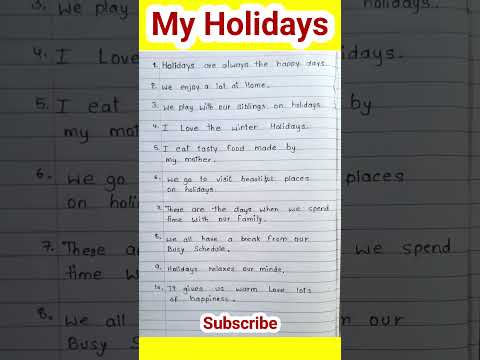 My Holidays
1. Holidays are always the happy days.
2. We enjoy a lot at Home.
3. We play with our siblings on holidays.
4. I Love the winter Holidays.
5. I eat tasty food made by
my mother.
6. We go to visit beautiful places
on holidays.
7. There are the days when we spend
time with our Family.
8. We all have a break from our
Busy Schedule.
9. Holidays relaxes our minds.
10. It gives us warm Love lots
of happiness.
Subscribe
3. We play
holidays.
4. I Love
days.
5. I eat
by
my mother
6. We go
places
on holi
7. There
we spend
time
8. We all
our
Busy S